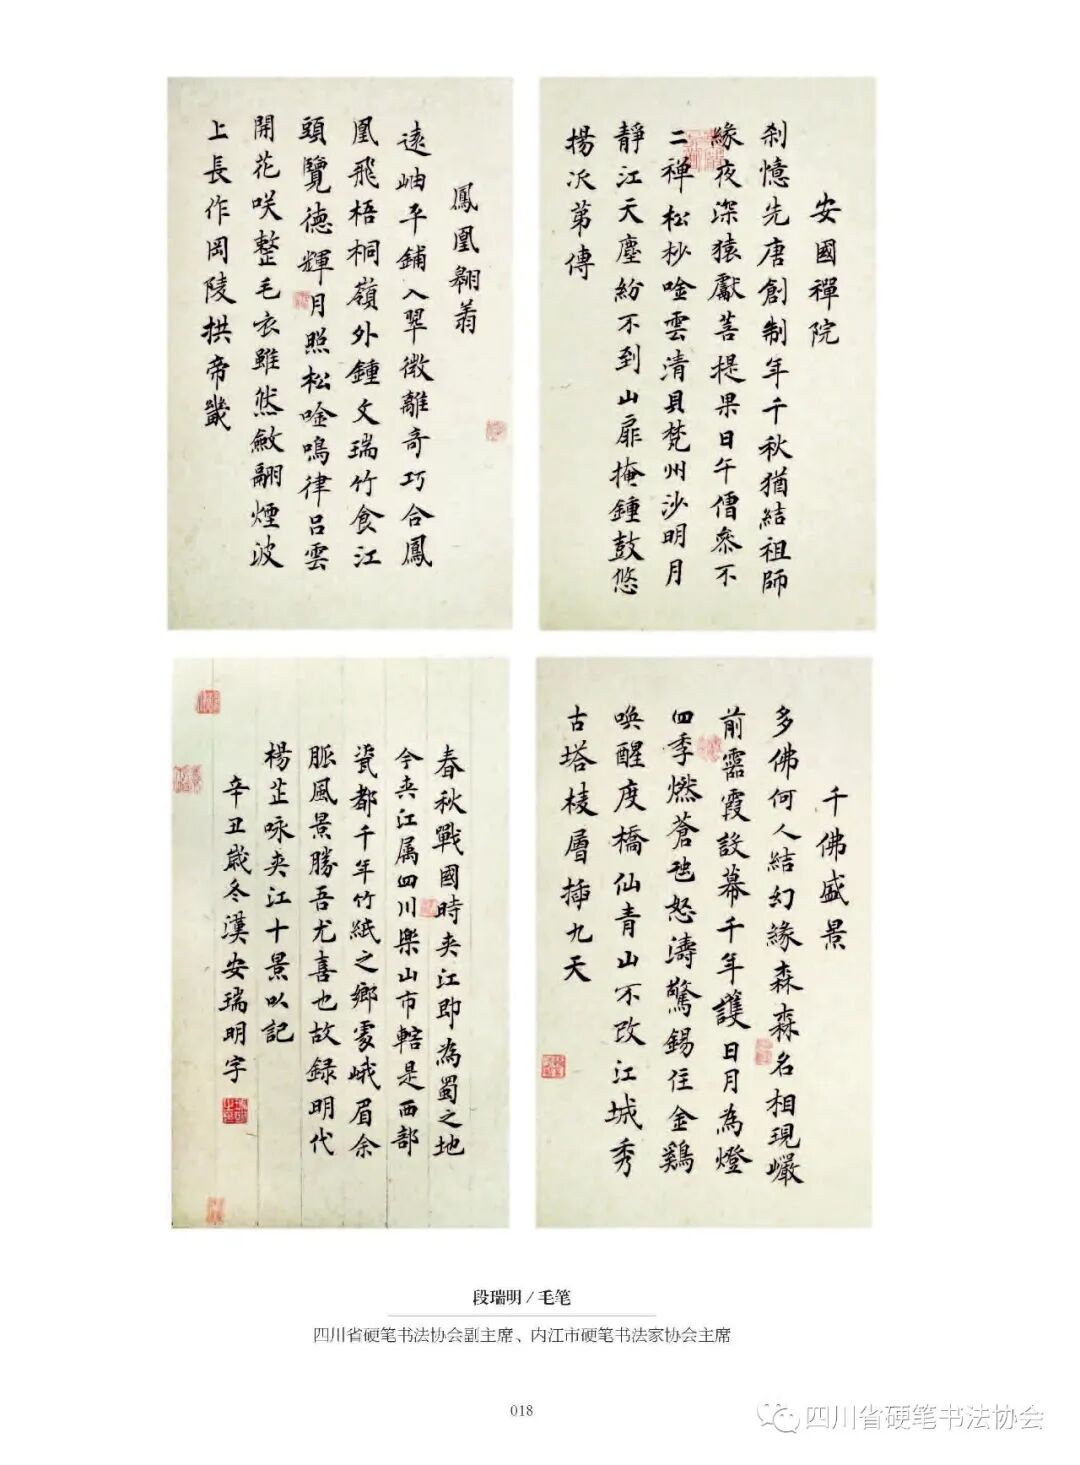 安國禪院
刹憶先唐創制年千秋猶結祖師
緣夜深猿獻菩提果日午僧參不
二禅松杪唫雲清貝梵州沙明月
靜江天塵紛不到山扉掩鍾鼓悠
揚派第傳
鳳凰翱翥
遠岫平鋪入翠微離奇巧合鳳
凰飛梧桐嶺外鍾文瑞竹食江
頭覽德輝月照松唫鳴律呂雲
開花咲整毛衣雖然斂翮煙波
上長作岡陵拱帝畿
千佛盛景
多佛何人結幻緣森森名相現巖
前霱霞設幕千年護日月為燈
四季燃蒼虬怒濤驚錫住金鷄
喚醒度橋仙青山不改江城秀
古塔棱層插九天
春秋戰國時夾江即為蜀之地
今夾江属四川樂山市轄是西部
瓷都千年竹紙之鄉處峨眉余
脈風景勝吾尤喜也故録明代
楊芷咏夾江十景以記
辛丑歲冬漢安瑞明字
段瑞明/毛笔
四川省硬笔书法协会副主席、内江市硬笔书法家协会主席
018
四川省硬笔书法协会